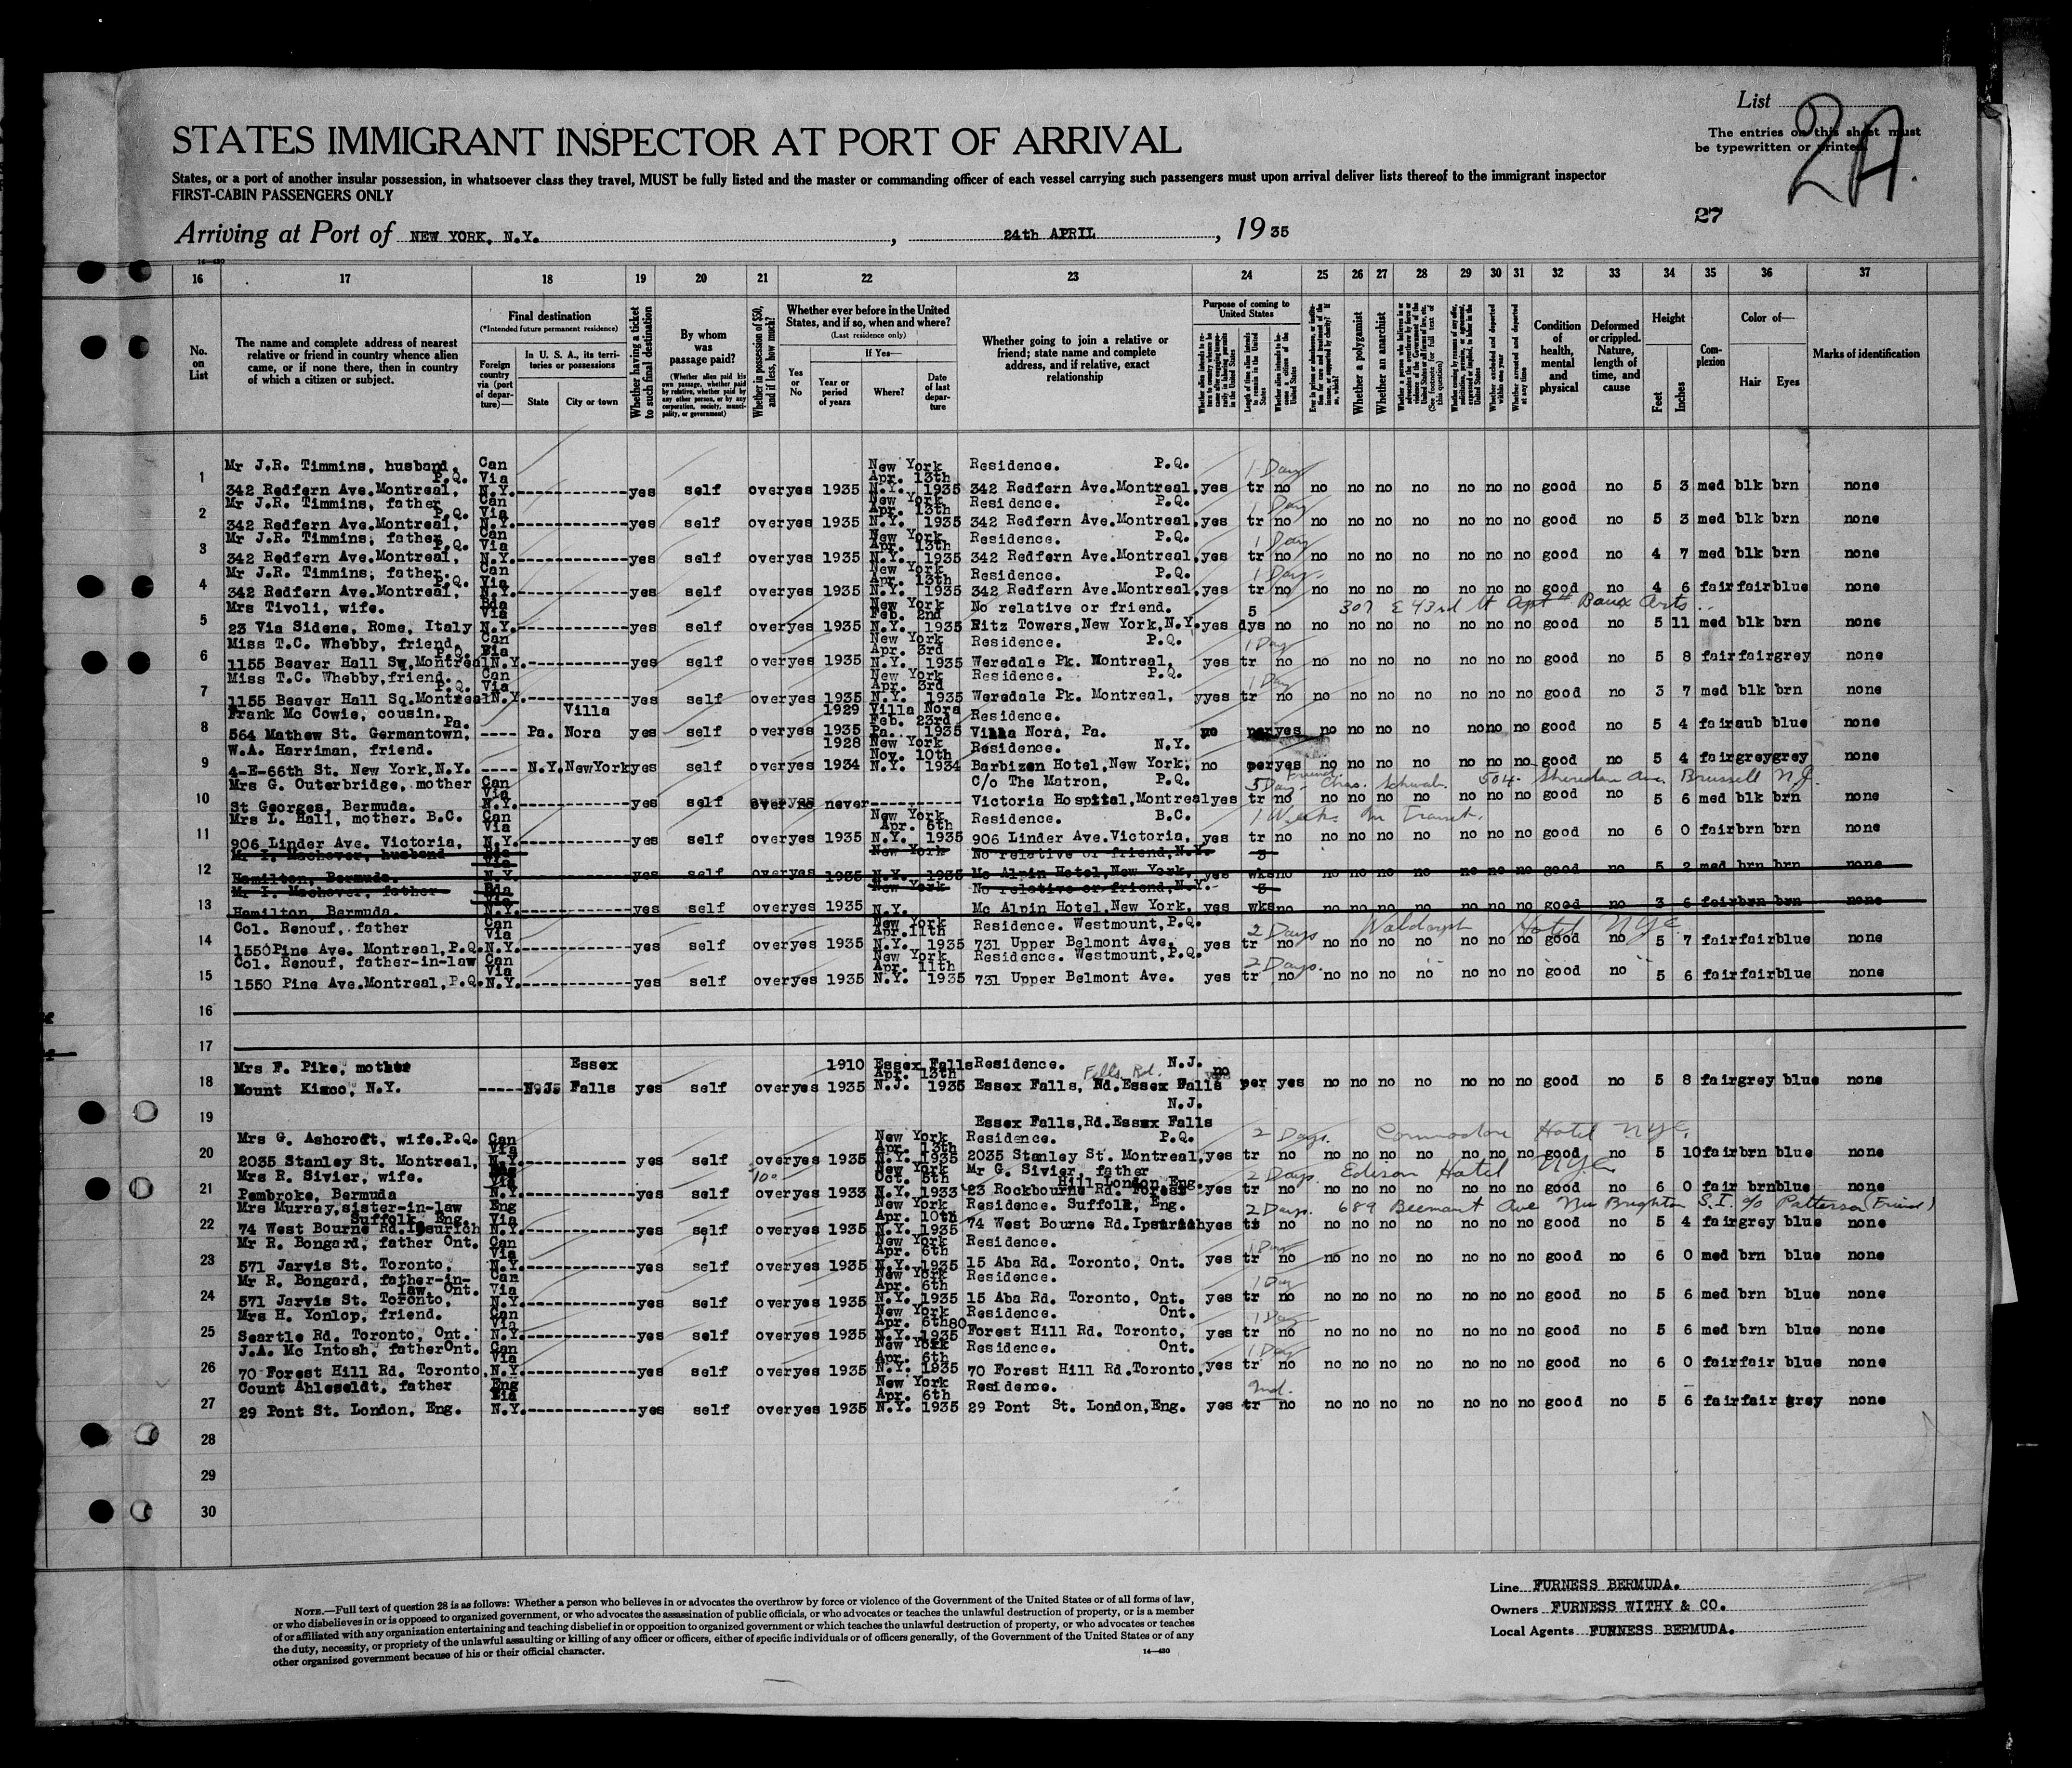 List 2A.
STATES IMMIGRANT INSPECTOR AT PORT OF ARRIVAL
The entries on this sheet must
be typewritten or printed.
States, or a port of another insular possession, in whatsoever class they travel, MUST be fully listed and the master or commanding officer of each vessel carrying such passengers must upon arrival deliver lists thereof to the immigrant inspector
FIRST-CABIN PASSENGERS ONLY
27
Arriving at Port of NEW YORK, N.Y. , 24th APRIL , 1935
16 17 18 19 20 21 22 23 24 25 26 27 28 29 30 31 32 33 34 35 36 37
No. on List
The name and complete address of nearest relative or friend in country whence alien came, or if none there, then in country of which a citizen or subject.
Final destination
(*Intended future permanent residence)
Foreign country via (port of departure)—
In U. S. A., its territories or possessions
State City or town
Whether having a ticket to such final destination
By whom was passage paid?
(Whether alien paid his own passage, whether paid by relative, whether paid by any other person, or by any corporation, society, municipality, or government)
Whether in possession of $50, and if less, how much?
Whether ever before in the United States, and if so, when and where?
(Last residence only)
Yes or No
If Yes—
Year or period of years
Where?
Date of last departure
Whether going to join a relative or friend; state name and complete address, and if relative, exact relationship
Purpose of coming to United States
Length of time alien intends to remain in the United States
Whether alien intends to become a citizen of the United States
Whether a polygamist
Whether an anarchist
Whether excluded and deported within one year
Whether arrested and deported at any time
Condition of health, mental and physical
Deformed or crippled. Nature, length of time, and cause
Height
Feet Inches
Complexion
Color of—
Hair Eyes
Marks of identification
1 Mr J.R. Timmins, husband, P.Q. Can Via New York Apr. 13th Residence. P.Q. 1 Day
342 Redfern Ave.Montreal, N.Y. yes self over yes 1935 N.Y. 1935 342 Redfern Ave.Montreal, yes tr no no no no no no no no good no 5 3 med blk brn none
2 Mr J.R. Timmins, father P.Q. Can Via New York Apr. 13th Residence. P.Q. 1 Day
342 Redfern Ave.Montreal, N.Y. yes self over yes 1935 N.Y. 1935 342 Redfern Ave.Montreal. yes tr no no no no no no no no good no 5 3 med blk brn none
3 Mr J.R. Timmins, father P.Q. Can Via New York Apr. 13th Residence. P.Q. 1 Day
342 Redfern Ave.Montreal, N.Y. yes self over yes 1935 N.Y. 1935 342 Redfern Ave.Montreal. yes tr no no no no no no no no good no 4 7 med blk brn none
4 Mr J.R. Timmins, father. P.Q. Can Via New York Apr. 13th Residence. P.Q. 1 Day
342 Redfern Ave.Montreal, N.Y. yes self over yes 1935 N.Y. 1935 342 Redfern Ave.Montreal, yes tr no no no no no no no no good no 4 6 fair fair blue none
5 Mrs Tivoli, wife. Bda Via New York Feb. 2nd No relative or friend. 5 307 E 43rd St Apt # Baux Arts
23 Via Sidene, Rome, Italy N.Y. yes self over yes 1935 N.Y. 1935 Ritz Towers,New York,N.Y. yes dys no no no no no no no no good no 5 11 med blk brn none
6 Miss T.C. Whebby, friend. P.Q. Can Via New York Apr. 3rd Residence. P.Q. 1 Day
1155 Beaver Hall Sq.Montreal N.Y. yes self over yes 1935 N.Y. 1935 Weredale Pk. Montreal, yes tr no no no no no no no no good no 5 8 fair fair grey none
7 Miss T.C. Whebby,friend. P.Q. Can Via New York Apr. 3rd Residence. P.Q. 1 Day
1155 Beaver Hall Sq.Montreal N.Y. yes self over yes 1935 N.Y. 1935 Weredale Pk. Montreal, yyes tr no no no no no no no no good no 3 7 med blk brn none
8 Frank Mc Cowie, cousin. Pa. Villa 1929 Villa Nora Feb. 23rd Residence.
564 Mathew St. Germantown, ---- Pa. Nora yes self over yes 1935 Pa. 1935 Villa Nora, Pa. no per yes no no no no no no no good no 5 4 fair aub blue none
9 W.A. Harriman, friend. 1928 New York Nov. 10th Residence. N.Y.
4-E-66th St. New York,N.Y. ---- N.Y. NewYork yes self over yes 1934 N.Y. 1934 Barbizen Hotel,New York. no per yes no no no no no no no good no 5 4 fair grey grey none
10 Mrs G. Outerbridge, mother Can Via C/o The Matron, P.Q. 5 Day Friend Chas. Schwab. 504 Sheridan Ave. Brussell N.J.
St Georges, Bermuda. N.Y. yes self over no never Victoria Hospital,Montreal yes tr no no no no no no no no good no 5 6 med blk brn none
11 Mrs L. Hall, mother. B.C. Can Via New York Apr. 6th Residence. B.C. 1 Weeks In Transit.
906 Linder Ave. Victoria, N.Y. yes self over yes 1935 N.Y. 1935 906 Linder Ave.Victoria. yes tr no no no no no no no no good no 6 0 fair brn brn none
12 Mr I. Machover, husband Bda Via New York No relative or friend,N.Y. 3
Hamilton, Bermuda. N.Y. yes self over yes 1935 N.Y. 1935 Mc Alpin Hotel,New York. yes wks no no no no no no no no good no 5 2 med brn brn none
13 Mr I. Machover, father Bda Via New York No relative or friend,N.Y. 3
Hamilton, Bermuda. N.Y. yes self over yes 1935 N.Y. Mc Alpin Hotel,New York. yes wks no no no no no no no no good no 3 6 fair brn brn none
14 Col. Renouf, father Can Via New York Apr. 11th Residence. Westmount,P.Q. 2 Days Waldorph Hotel NYC
1550Pine Ave. Montreal,P.Q. N.Y. yes self over yes 1935 N.Y. 1935 731 Upper Belmont Ave. yes tr no no no no no no no no good no 5 7 fair fair blue none
15 Col. Renouf, father-in-law Can Via New York Apr. 11th Residence. Westmount,P.Q. 2 Days.
1550 Pine Ave.Montreal,P.Q. N.Y. yes self over yes 1935 N.Y. 1935 731 Upper Belmont Ave. yes tr no no no no no no no no good no 5 6 fair fair blue none
16
17
18 Mrs F. Pike, mother Essex 1910 Essex Falls Apr. 13th Residence. Fells Rd. N.J. no
Mount Kisco, N.Y. ----- N.J. Falls yes self over yes 1935 N.J. 1935 Essex Falls, Rd.Essex Falls per yes no no no no no no no good no 5 8 fair grey blue none
N.J.
19 Essex Falls,Rd.Essex Falls
20 Mrs G. Ashcroft, wife.P.Q. Can Via New York Apr. 13th Residence. P.Q. 2 Days. Commodore Hotel NYC.
2035 Stanley St. Montreal, N.Y. yes self over yes 1935 N.Y. 1935 2035 Stanley St. Montreal, yes tr no no no no no no no no good no 5 10 fair brn blue none
21 Mrs R. Sivier, wife. Via 100 New York Oct. 5th Mr G. Sivier, father Hill London Eng. 2 Days. Edison Hotel NYC
Pembroke, Bermuda N.Y. yes self over yes 1933 N.Y. 1933 23 Rockbourne Rd. Forest yes tr no no no no no no no no good no 6 0 fair brn blue none
22 Mrs Murray,sister-in-law Suffolk, Eng. Eng Via New York Apr. 10th Residence. Suffolk, Eng. 2 Days. 689 Beemant Ave Nw Brighton S.I. c/o Patterson (Friend)
74 West Bourne Rd. N.Y. yes self over yes 1935 N.Y. 1935 74 West Bourne Rd. yes no no no no no no no no good no 5 4 fair grey blue none
23 Mr R. Bongard, father Ont. Can Via New York Apr. 6th Residence. 1 Day
571 Jarvis St. Toronto, N.Y. yes self over yes 1935 N.Y. 1935 15 Aba Rd. Toronto, Ont. yes tr no no no no no no no no good no 6 0 med brn blue none
24 Mr R. Bongard, father-in-law Ont. Can Via New York Apr. 6th Residence. 1 Day
571 Jarvis St. Toronto, N.Y. yes self over yes 1935 N.Y. 1935 15 Aba Rd. Toronto, Ont. yes tr no no no no no no no no good no 5 6 med brn blue none
25 Mrs H. Yonlop, friend. Can Via New York Apr. 6th 80 Residence. Ont. 1 Day
Seartle Rd. Toronto, Ont. N.Y. yes self over yes 1935 N.Y. 1935 Forest Hill Rd. Toronto, yes tr no no no no no no no no good no 5 6 med brn blue none
26 J.A. Mc Intosh, father Ont. Can Via New York Apr. 6th Residence. Ont. 1 Day
70 Forest Hill Rd. Toronto, N.Y. yes self over yes 1935 N.Y. 1935 70 Forest Hill Rd.Toronto, yes tr no no no no no no no no good no 6 0 fair fair blue none
27 Count Ahleseldt, father Eng Via New York Apr. 6th Residence. 2nd.
29 Pont St. London, Eng. N.Y. yes self over yes 1935 N.Y. 1935 29 Pont St. London,Eng. yes tr no no no no no no no no good no 5 6 fair fair grey none
28
29
30
NOTE.—Full text of question 28 is as follows: Whether a person who believes in or advocates the overthrow by force or violence of the Government of the United States or of all forms of law,
or who disbelieves in or is opposed to organized government, or who advocates the assassination of public officials, or who advocates or teaches the unlawful destruction of property, or is a member
of or affiliated with any organization entertaining and teaching disbelief in or opposition to organized government or which teaches the unlawful destruction of property, or who advocates or teaches
the duty, necessity, or propriety of the unlawful assaulting or killing of any officer or officers, either of specific individuals or of officers generally, of the Government of the United States or of any
other organized government because of his or their official character.
Line FURNESS BERMUDA.
Owners FURNESS WITHY & CO.
Local Agents FURNESS BERMUDA.